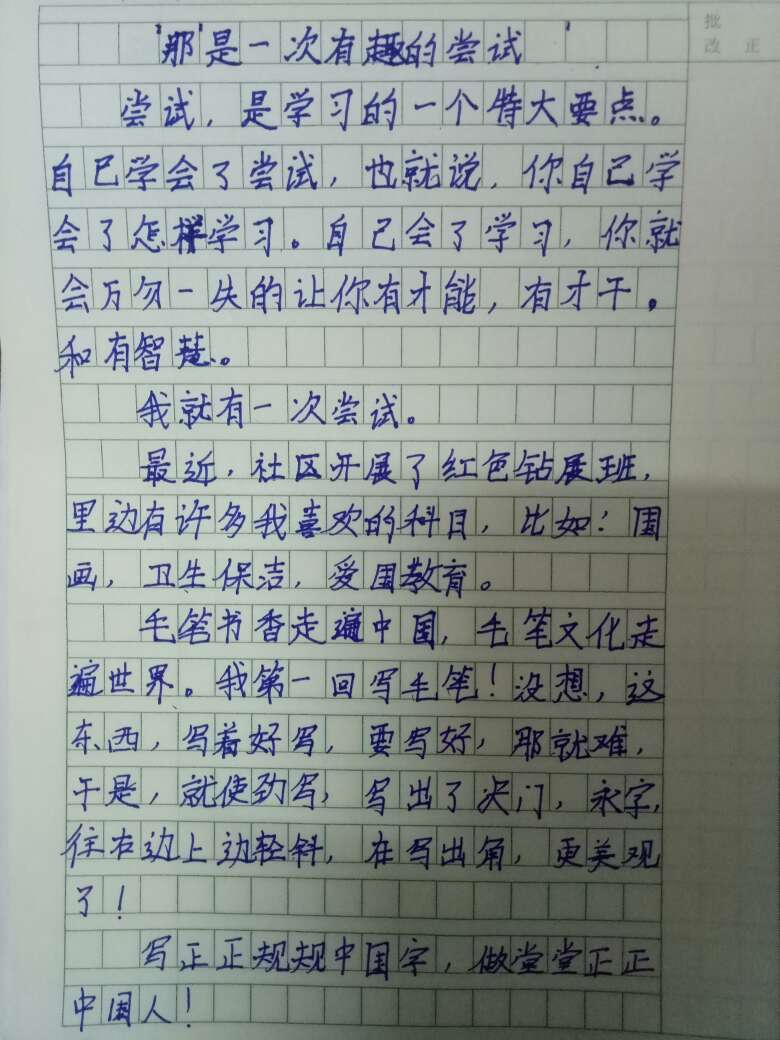 批
改 正
"那"是一次有趣的尝试
尝试，是学习的一个特大要点。
自己学会了尝试，也就说，你自己学
会了怎样学习。自己会了学习，你就
会万勿一失的让你有才能，有才干。
和有智慧。
我就有一次尝试。
最近，社区开展了红色钻展班，
里边有许多我喜欢的科目，比如：国
画，卫生保洁，爱国教育。
毛笔书香走遍中国，毛笔文化走
遍世界。我第一回写毛笔！没想，这
东西，写着好写，要写好，那就难，
于是，就使劲写，写出了决门，永字，
往右边上边轻斜，在写出角，更美观
了！
写正正规规中国字，做堂堂正正
中国人！